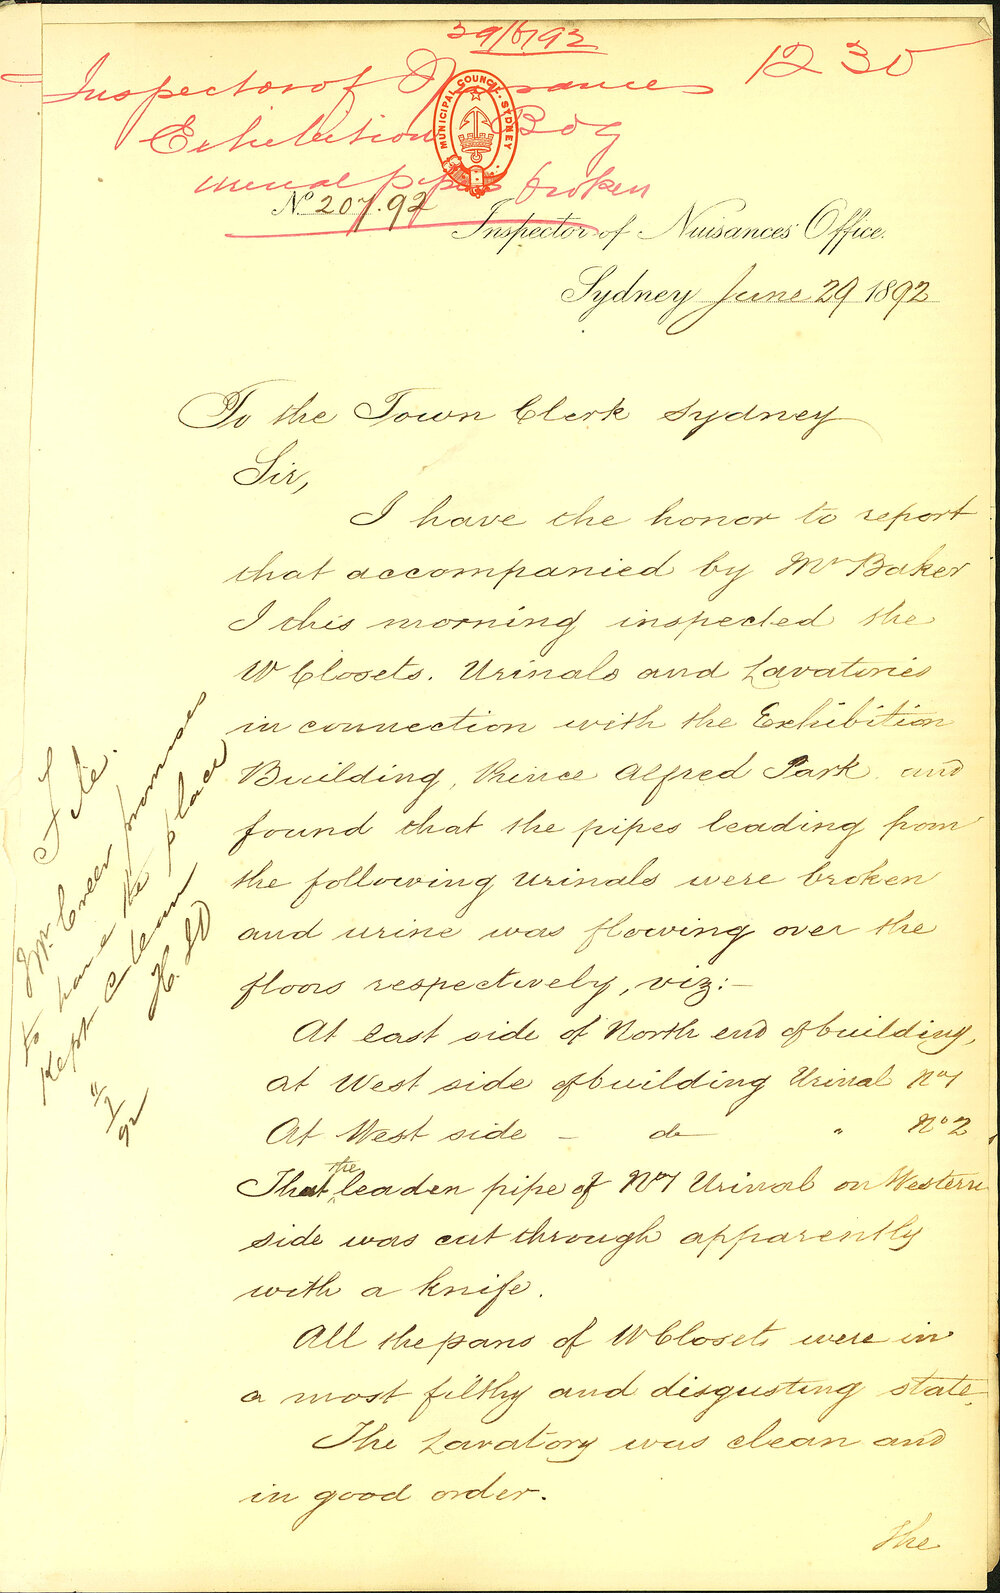 29/6/92
Inspector of Nuisances 1230
Exhibition Bdg
urinal pipes broken
MUNICIPAL COUNCIL. SYDNEY
No 207.92
Inspector of Nuisances' Office.
Sydney June 29 1892
To the Town Clerk Sydney
Sir,
I have the honor to report
that accompanied by Mr Baker
I this morning inspected the
W Closets. Urinals and Lavatories
in connection with the Exhibition
Building, Prince Alfred Park and
found that the pipes leading from
the following urinals were broken
and urine was flowing over the
floors respectively, viz:-
At East side of North end of building,
at West side of building Urinal No 1
At West side - do " No 2
That the leaden pipe of No 1 Urinal on Western
side was cut through apparently
with a knife.
All the pans of W Closets were in
a most filthy and disgusting state.
The Lavatory was clean and
in good order.
the
File.
Mr. Creer promises
to have the place
kept clean
H.